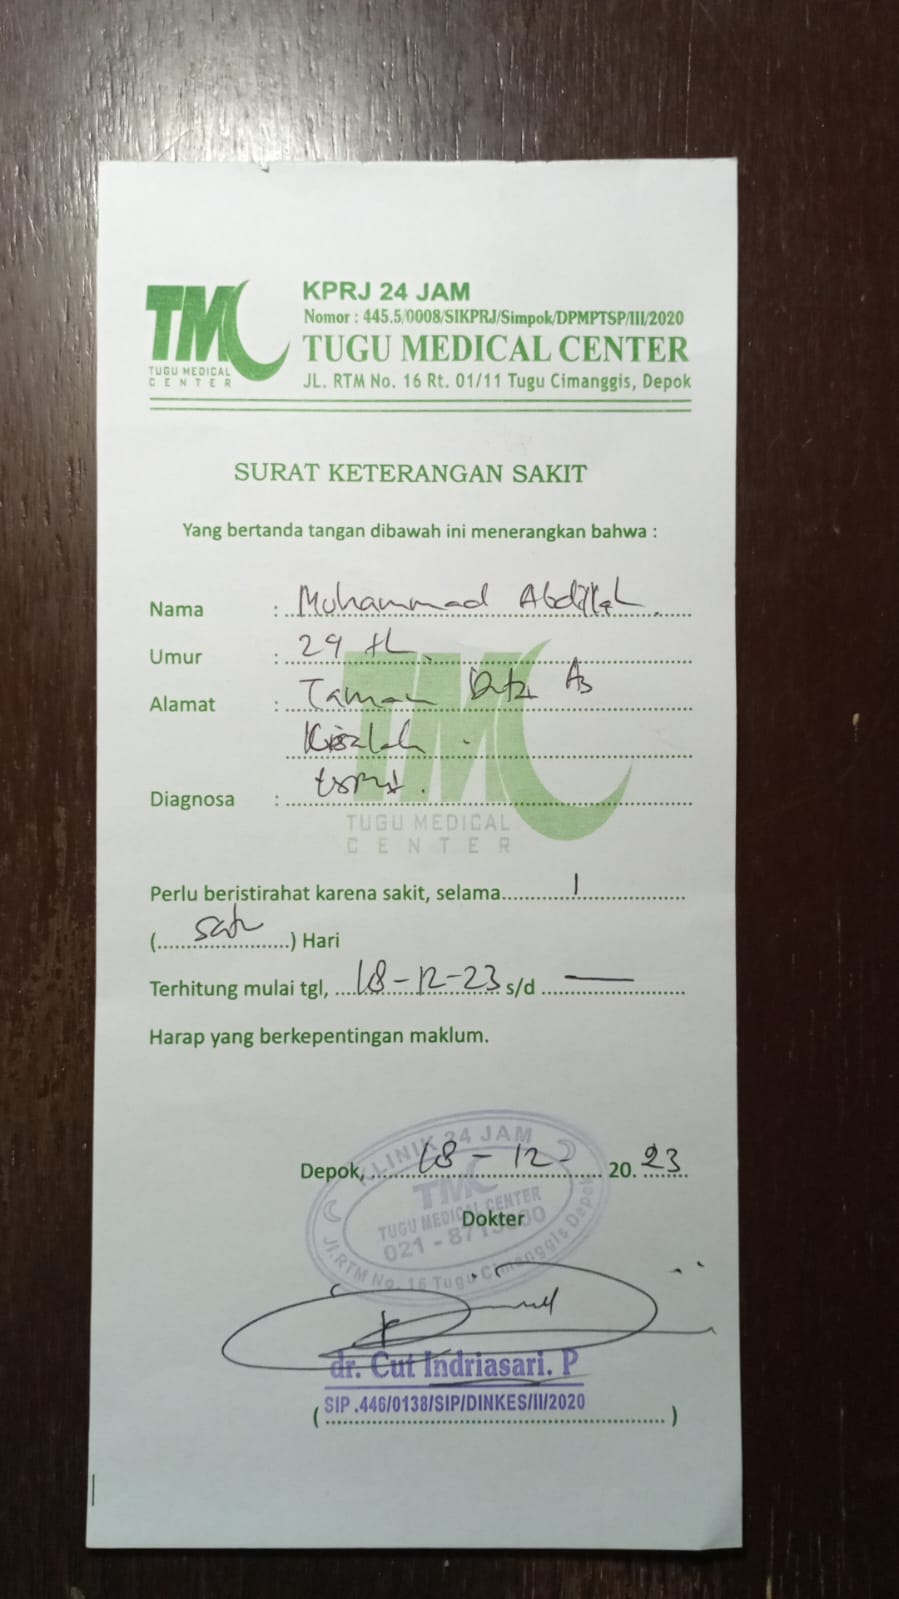 TMC
TUGU MEDICAL
CENTER
KPRJ 24 JAM
Nomor : 445.5/0008/SIKPRJ/Simpok/DPMPTSP/III/2020
TUGU MEDICAL CENTER
JL. RTM No. 16 Rt. 01/11 Tugu Cimanggis, Depok
SURAT KETERANGAN SAKIT
Yang bertanda tangan dibawah ini menerangkan bahwa :
Nama : Muhammad Abdillah
Umur : 29 th
Alamat : Taman Duta
Diagnosa :
TMC
TUGU MEDICAL
CENTER
Perlu beristirahat karena sakit, selama 1
(satu) Hari
Terhitung mulai tgl, 18-12-23 s/d —
Harap yang berkepentingan maklum.
Depok, 18 - 12 - 20.23
Dokter
KLINIK 24 JAM
TMC
TUGU MEDICAL CENTER
Jl.RTM No. 16 Tugu Cimanggis Depok
dr. Cut Indriasari. P
SIP .446/0138/SIP/DINKES/II/2020